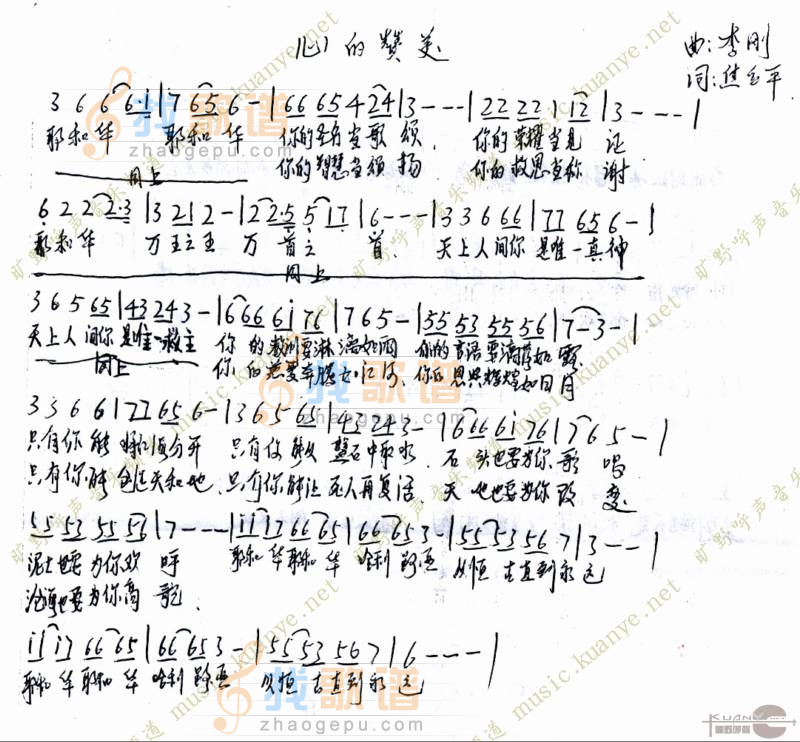 心的赞美
曲:李刚
词:焦玉平
3 6 6 6·i | 7 6 5 6 - | 6 6 6 5 4 2 4 | 3 - - - | 2 2 2 2 1 1 2 | 3 - - - |
耶和华 耶和华 你的圣名当歌颂, 你的荣耀当见证
同上 你的智慧当颂扬 你的救恩当称谢
6 2 2 2 2·3 | 3 2 1 2 - | 2 2 2·5 5 1 7 | 6 - - - | 3 3 6 6 6 | 7 7 6 5 6 - |
耶和华 万王之王 万首之首. 天上人间你是唯一真神
同上
3 6 5 6 5 | 4 3 2 4 3 - | 6 6 6 6 i 7 6 | 7 6 5 - | 5 5 5 3 5 5 5 6 | 7 - 3 - |
天上人间你是唯一救主 你的教训要淋漓如雨 你的言语要滴落如露
同上 你的慈爱奔腾如江河, 你的恩典辉煌如日月
3 3 6 6 | 7 7 6 5 6 - | 3 6 5 6 5 | 4 3 2 4 3 - | 6 6 6 6 i 7 6 | 7 6 5 - |
只有你能 分开 只有你能 磐石中取水. 石头也要为你歌唱
只有你能创造天和地, 只有你能让死人再复活, 天地也要为你改变.
5 5 5 3 5 5 5 6 | 7 - - - | i i i 7 6 6 6 5 | 6 6 6 5 3 - | 5 5 5 3 5 6 7 | 3 - - - |
泥土也要为你欢呼 耶和华耶和华 哈利路亚 从恒古直到永远
沧海也要为你高歌.
i i i 7 6 6 6 5 | 6 6 6 5 3 - | 5 5 5 3 5 6 7 | 6 - - - |
耶和华耶和华 哈利路亚 从恒古直到永远
找歌谱
zhaogepu.com
旷野呼声音乐频道 music.kuanye.net
KUANYE.NET
旷野呼声